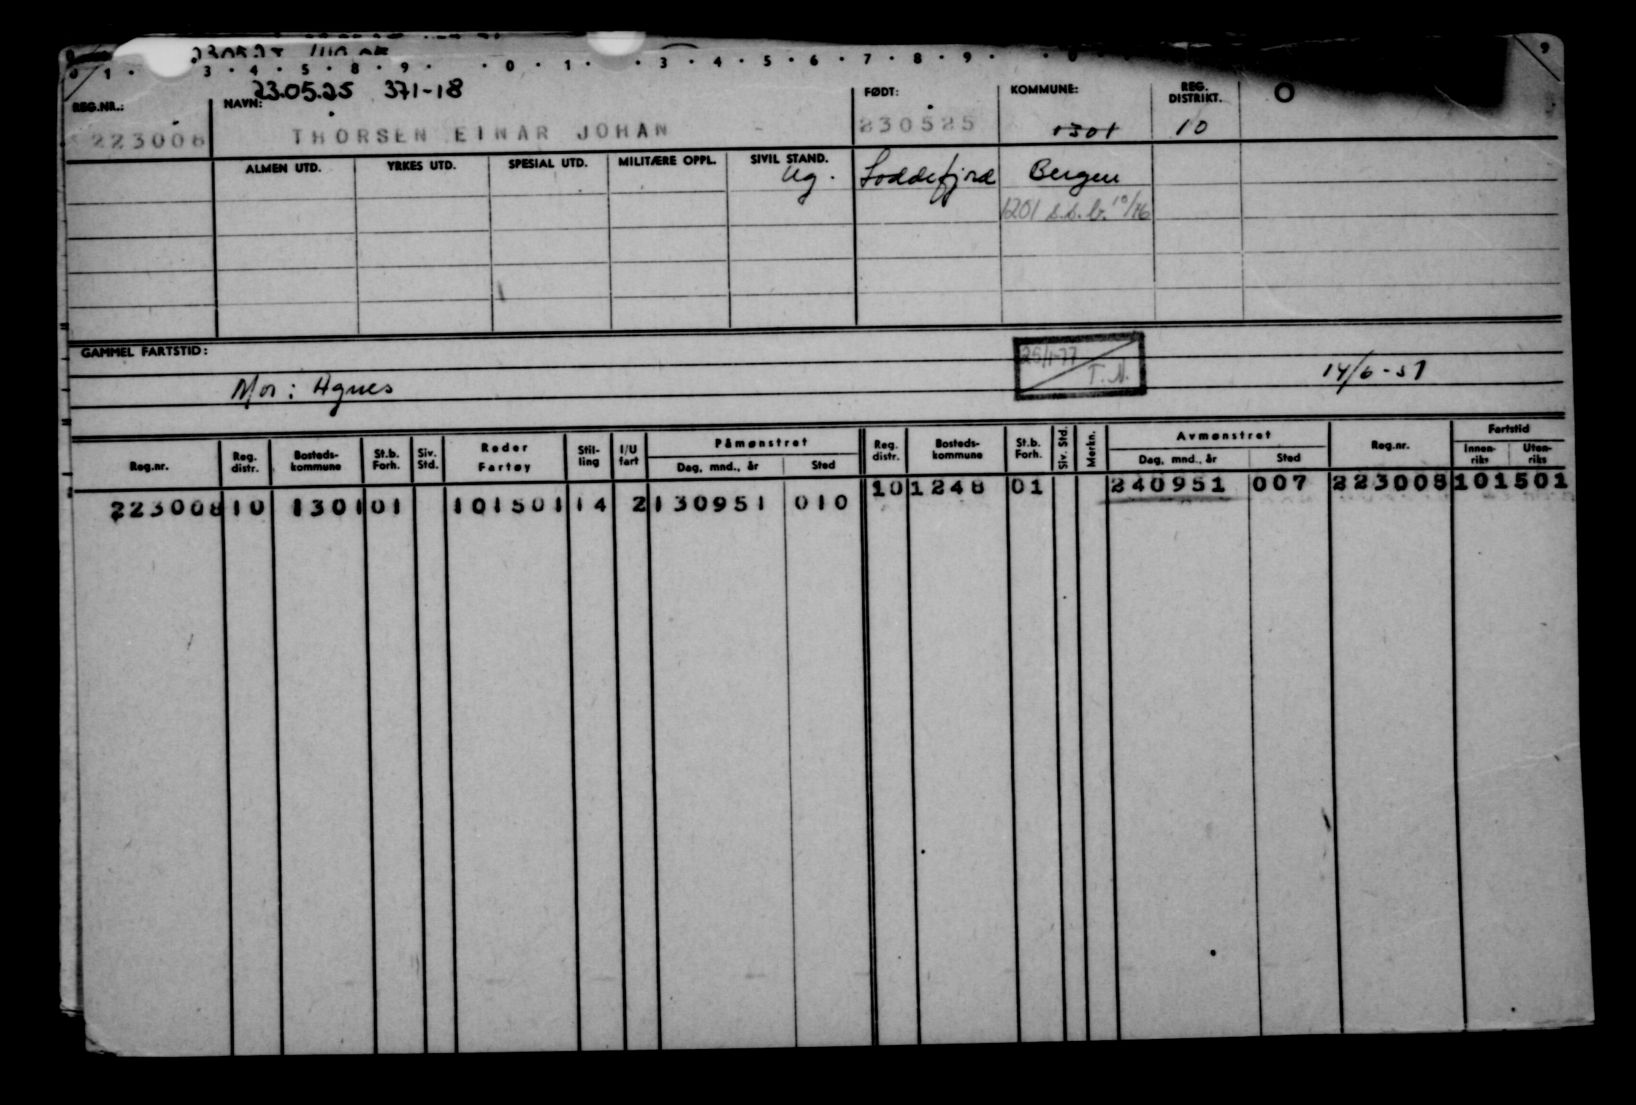 1 3 4 5 8 9 0 1 3 4 5 6 7 8 9 9
23.05.25 371-18
REG.NR.: NAVN: FØDT: KOMMUNE: REG. DISTRIKT. O
223008 THORSEN EINAR JOHAN 230525 1301 10
ALMEN UTD. YRKES UTD. SPESIAL UTD. MILITÆRE OPPL. SIVIL STAND.
ug. Loddefjord Bergen
1201 s.s.b. 10/76
GAMMEL FARTSTID:
25/1-77
T.N.
Mor: Agnes 14/6-51
Påmønstret Avmønstret Fartstid
Reg.nr. Reg. distr. Bosteds-kommune St.b. Forh. Siv. Std. Reder Fartøy Stil-ling I/U fart Dag, mnd., år Sted Reg. distr. Bosteds-kommune St.b. Forh. Siv. Std. Merkn. Dag, mnd., år Sted Reg.nr. Innen-riks Uten-riks
223008 10 1301 01 101501 14 2 130951 010 10 1248 01 240951 007 223008 101501